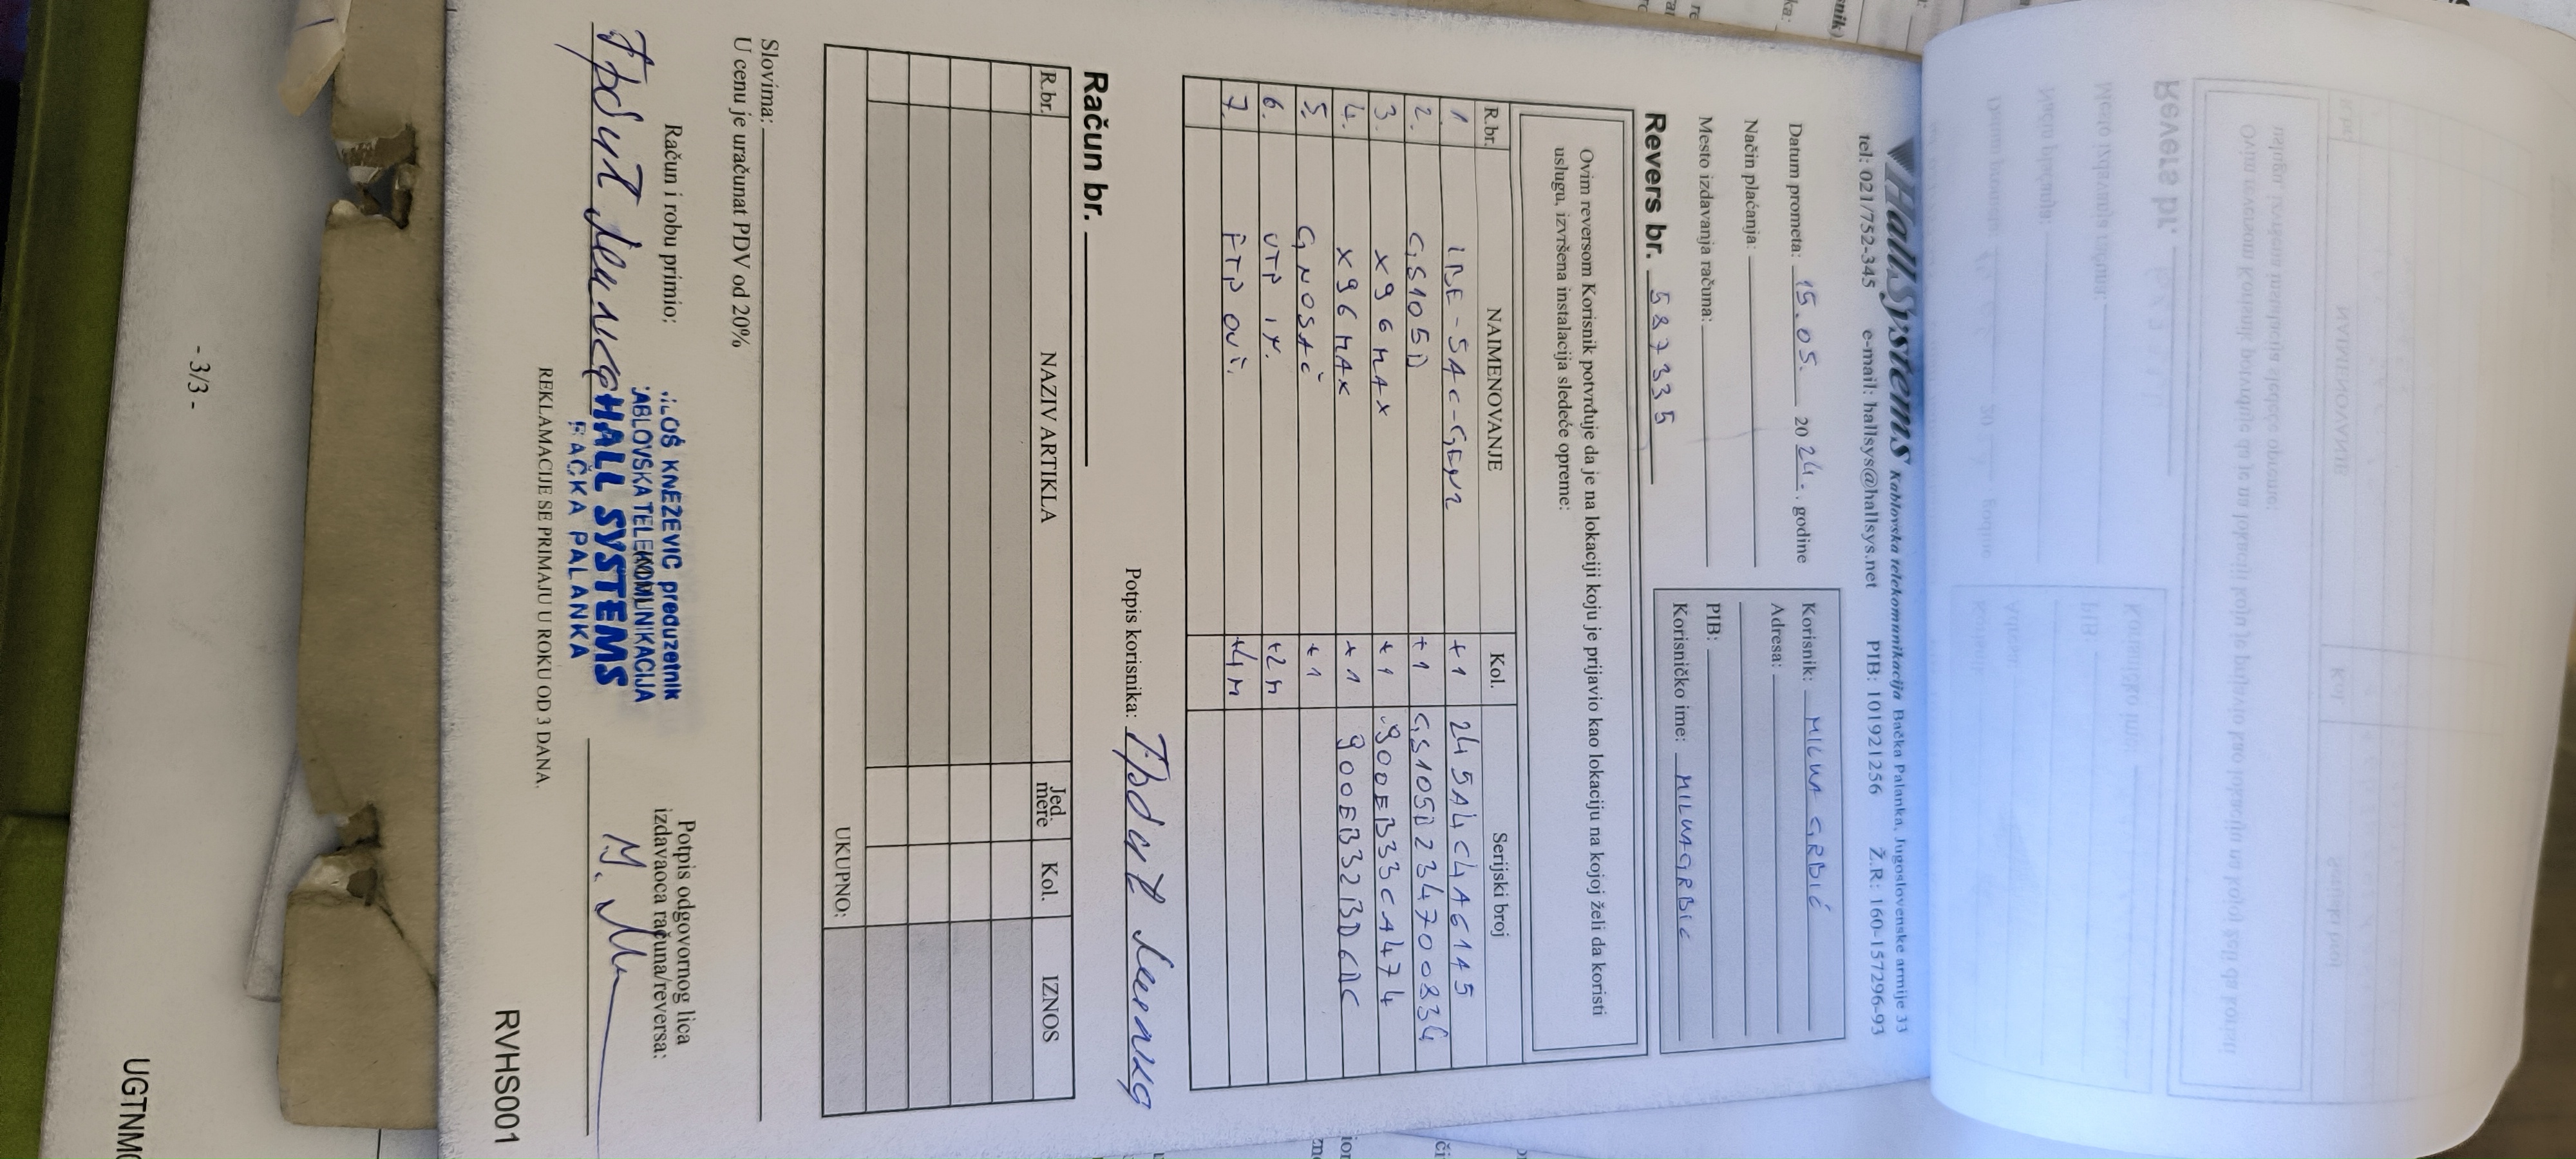 HallSystems Kablovska telekomunikacija, Bačka Palanka, Jugoslovenske armije 33
tel: 021/752-345 e-mail: hallsys@hallsys.net PIB: 101921256 Ž.R: 160-157296-93
Datum prometa: 15.05. 2024., godine
Način plaćanja:
Mesto izdavanja računa:
Korisnik: MILKA GRBIĆ
Adresa:
PIB:
Korisničko ime: MILKAGRBIC
Revers br. 587335
Ovim reversom Korisnik potvrđuje da je na lokaciji koju je prijavio kao lokaciju na kojoj želi da koristi
uslugu, izvršena instalacija sledeće opreme:
R.br. NAIMENOVANJE Kol. Serijski broj
1 LBE-5AC-GEN2 +1 245A4C4A6145
2. GS105D +1 GS105D234700834
3. X96MAX +1 900EB333CA474
4. X96MAX +1 900EB32BD6DC
5. G,NOSAČ +1
6. UTP +2M
7. FTP +4M
Potpis korisnika: Грбић Милка
Račun br.
R.br. NAZIV ARTIKLA Jed. mere Kol. IZNOS
UKUPNO:
Slovima:
U cenu je uračunat PDV od 20%
Račun i robu primio:
Грбић Милка
ILOŠ KNEŽEVIĆ preduzetnik
ABLOVSKA TELEKOMUNIKACIJA
HALL SYSTEMS
BAČKA PALANKA
Potpis odgovornog lica
izdavaoca računa/reversa:
REKLAMACIJE SE PRIMAJU U ROKU OD 3 DANA.
RVHS001
- 3/3 -